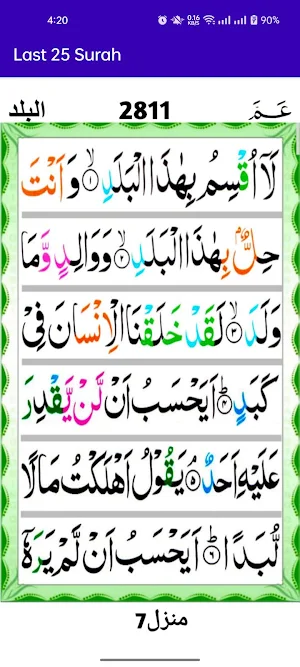 4:20 0.16 KB/S 90%
Last 25 Surah
البلد 2811 عَـمَّ
لَاۤ اُقْسِمُ بِهٰذَا الْبَلَدِ ۙ‏﴿۱﴾ وَ اَنْتَ
حِلٌّۢ بِهٰذَا الْبَلَدِ ۙ‏﴿۲﴾ وَ وَالِدٍ وَّ مَا
وَلَدَ ۙ‏﴿۳﴾ لَقَدْ خَلَقْنَا الْاِنْسَانَ فِیْ
كَبَدٍ ؕ‏﴿۴﴾ اَیَحْسَبُ اَنْ لَّنْ یَّقْدِرَ
عَلَیْهِ اَحَدٌ ۘ‏﴿۵﴾ یَقُوْلُ اَهْلَكْتُ مَالًا
لُّبَدًا ؕ‏﴿۶﴾ اَیَحْسَبُ اَنْ لَّمْ یَرَهٗۤ
منزل7